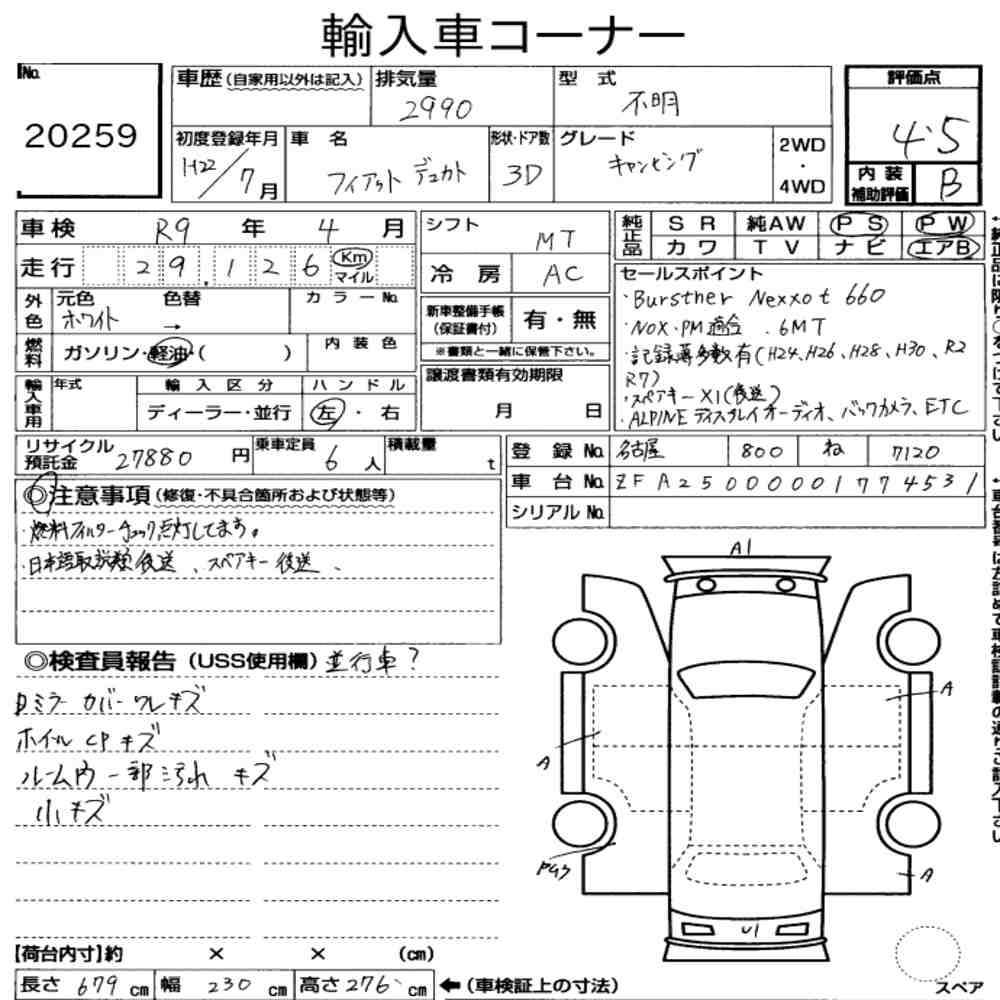 輸入車コーナー
No. 20259
車歴(自家用以外は記入)
排気量 2990
型式 不明
評価点 4.5
内装補助評価 B
初度登録年月 H22/7月
車名 フィアット デュカト
形状・ドア数 3D
グレード キャンピング
2WD・4WD
車検 R9年 4月
走行 29.126 Km マイル
シフト MT
冷房 AC
純正品 SR 純AW PS PW
カワ TV ナビ エアB
外色 元色 ホワイト → 色替
カラーNo.
燃料 ガソリン・軽油・( )
内装色
新車整備手帳(保証書付) 有・無
※書類と一緒に保管下さい。
輸入車用 年式
輸入区分 ディーラー・並行
ハンドル 左・右
譲渡書類有効期限 月 日
セールスポイント
・Bursther Nexxo t 660
・NOX・PM適合 .6MT
・記録簿多数有(H24、H26、H28、H30、R2
R7)
・スペアキーX1(後送)
・ALPINEディスプレイオーディオ、バックカメラ、ETC
リサイクル預託金 27880円
乗車定員 6人
積載量 t
登録No. 名古屋 800 ね 7120
車台No. ZFA25000001774531
シリアルNo.
◎注意事項(修復・不具合箇所および状態等)
・燃料フィルターチェック点灯してます。
・日本語取説類後送、スペアキー後送、
◎検査員報告(USS使用欄) 並行車?
Dミラーカバーワレキズ
ホイルCPキズ
ルーム内一部汚れ キズ
小キズ
A1
A
A
A
U1
【荷台内寸】約 × × (cm)
長さ 679cm 幅 230cm 高さ 276cm ←(車検証上の寸法)
スペア